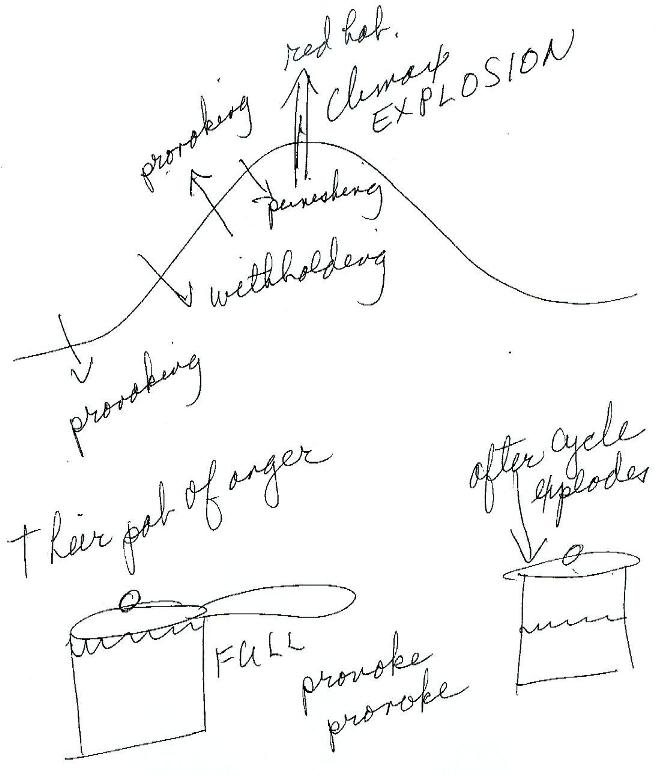 red hot.
Climax
EXPLOSION
provoking
punishing
withholding
provoking
after cycle
explodes
their pot of anger
FULL
provoke
provoke